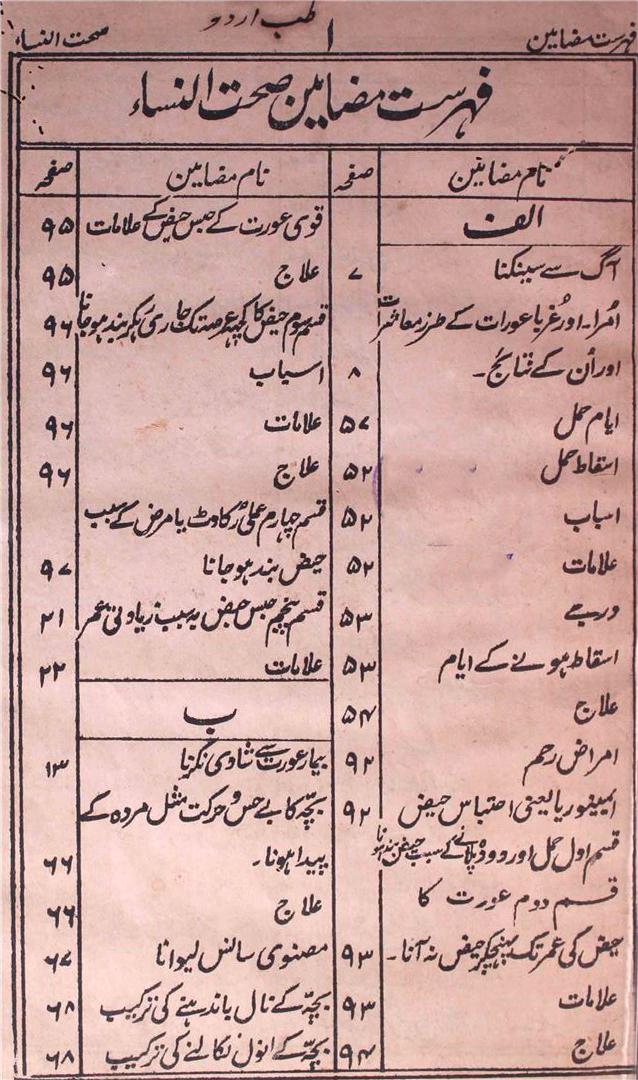 طب اردو
فہرست مضامین ۱ صحت النساء
فہرست مضامین صحت النساء
نام مضامین صفحہ
الف
آگ سے سینکنا ۷
اُمرا۔ اور غُربا عورات کے طرز معاشرات
اور اُن کے نتائج۔ ۸
ایام حمل ۵۷
اسقاط حمل ۵۲
اسباب ۵۲
علامات ۵۲
درجے ۵۳
اسقاط ہونے کے ایام ۵۳
علاج ۵۴
امراض رحم ۹۲
ایمینوریا یعنی احتباس حیض ۹۲
قسم اول حمل اور دودہ پلانے کے سبب حیض بند ہونا
قسم دوم عورت کا
حیض کی عمر تک پہنچکر حیض نہ آنا۔ ۹۳
علامات ۹۳
علاج ۹۴
نام مضامین صفحہ
قوی عورت کے حبس حیض کے علامات ۹۵
علاج ۹۵
قسم سوم حیض کا کچہہ عرصہ تک جاری رہکر بند ہو جانا ۹۶
اسباب ۹۶
علامات ۹۶
علاج ۹۶
قسم چہارم عملی رکاوٹ یا مرض کے سبب
حیض بند ہو جانا ۹۷
قسم پنجم حبس حیض بہ سبب زیادتی عمر ۲۱
علامات ۲۲
ب
بیمار عورت سے شادی نکرنا ۱۳
بچّہ کا بے حس و حرکت مثل مردہ کے
پیدا ہونا۔ ۶۶
علاج ۶۶
مصنوعی سانس لیوانا ۶۷
بچّہ کے نال باندہنے کی ترکیب ۶۸
بچّہ کے انول نکالنے کی ترکیب ۶۸